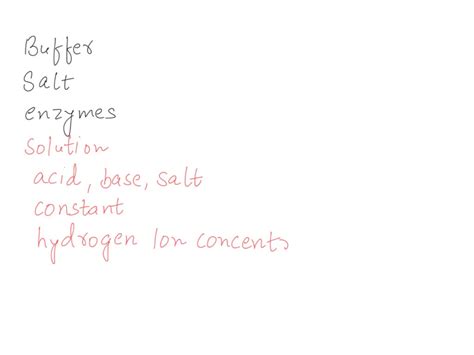 Buffer
Salt
enzymes
Solution
acid, base, salt
constant
hydrogen Ion concents